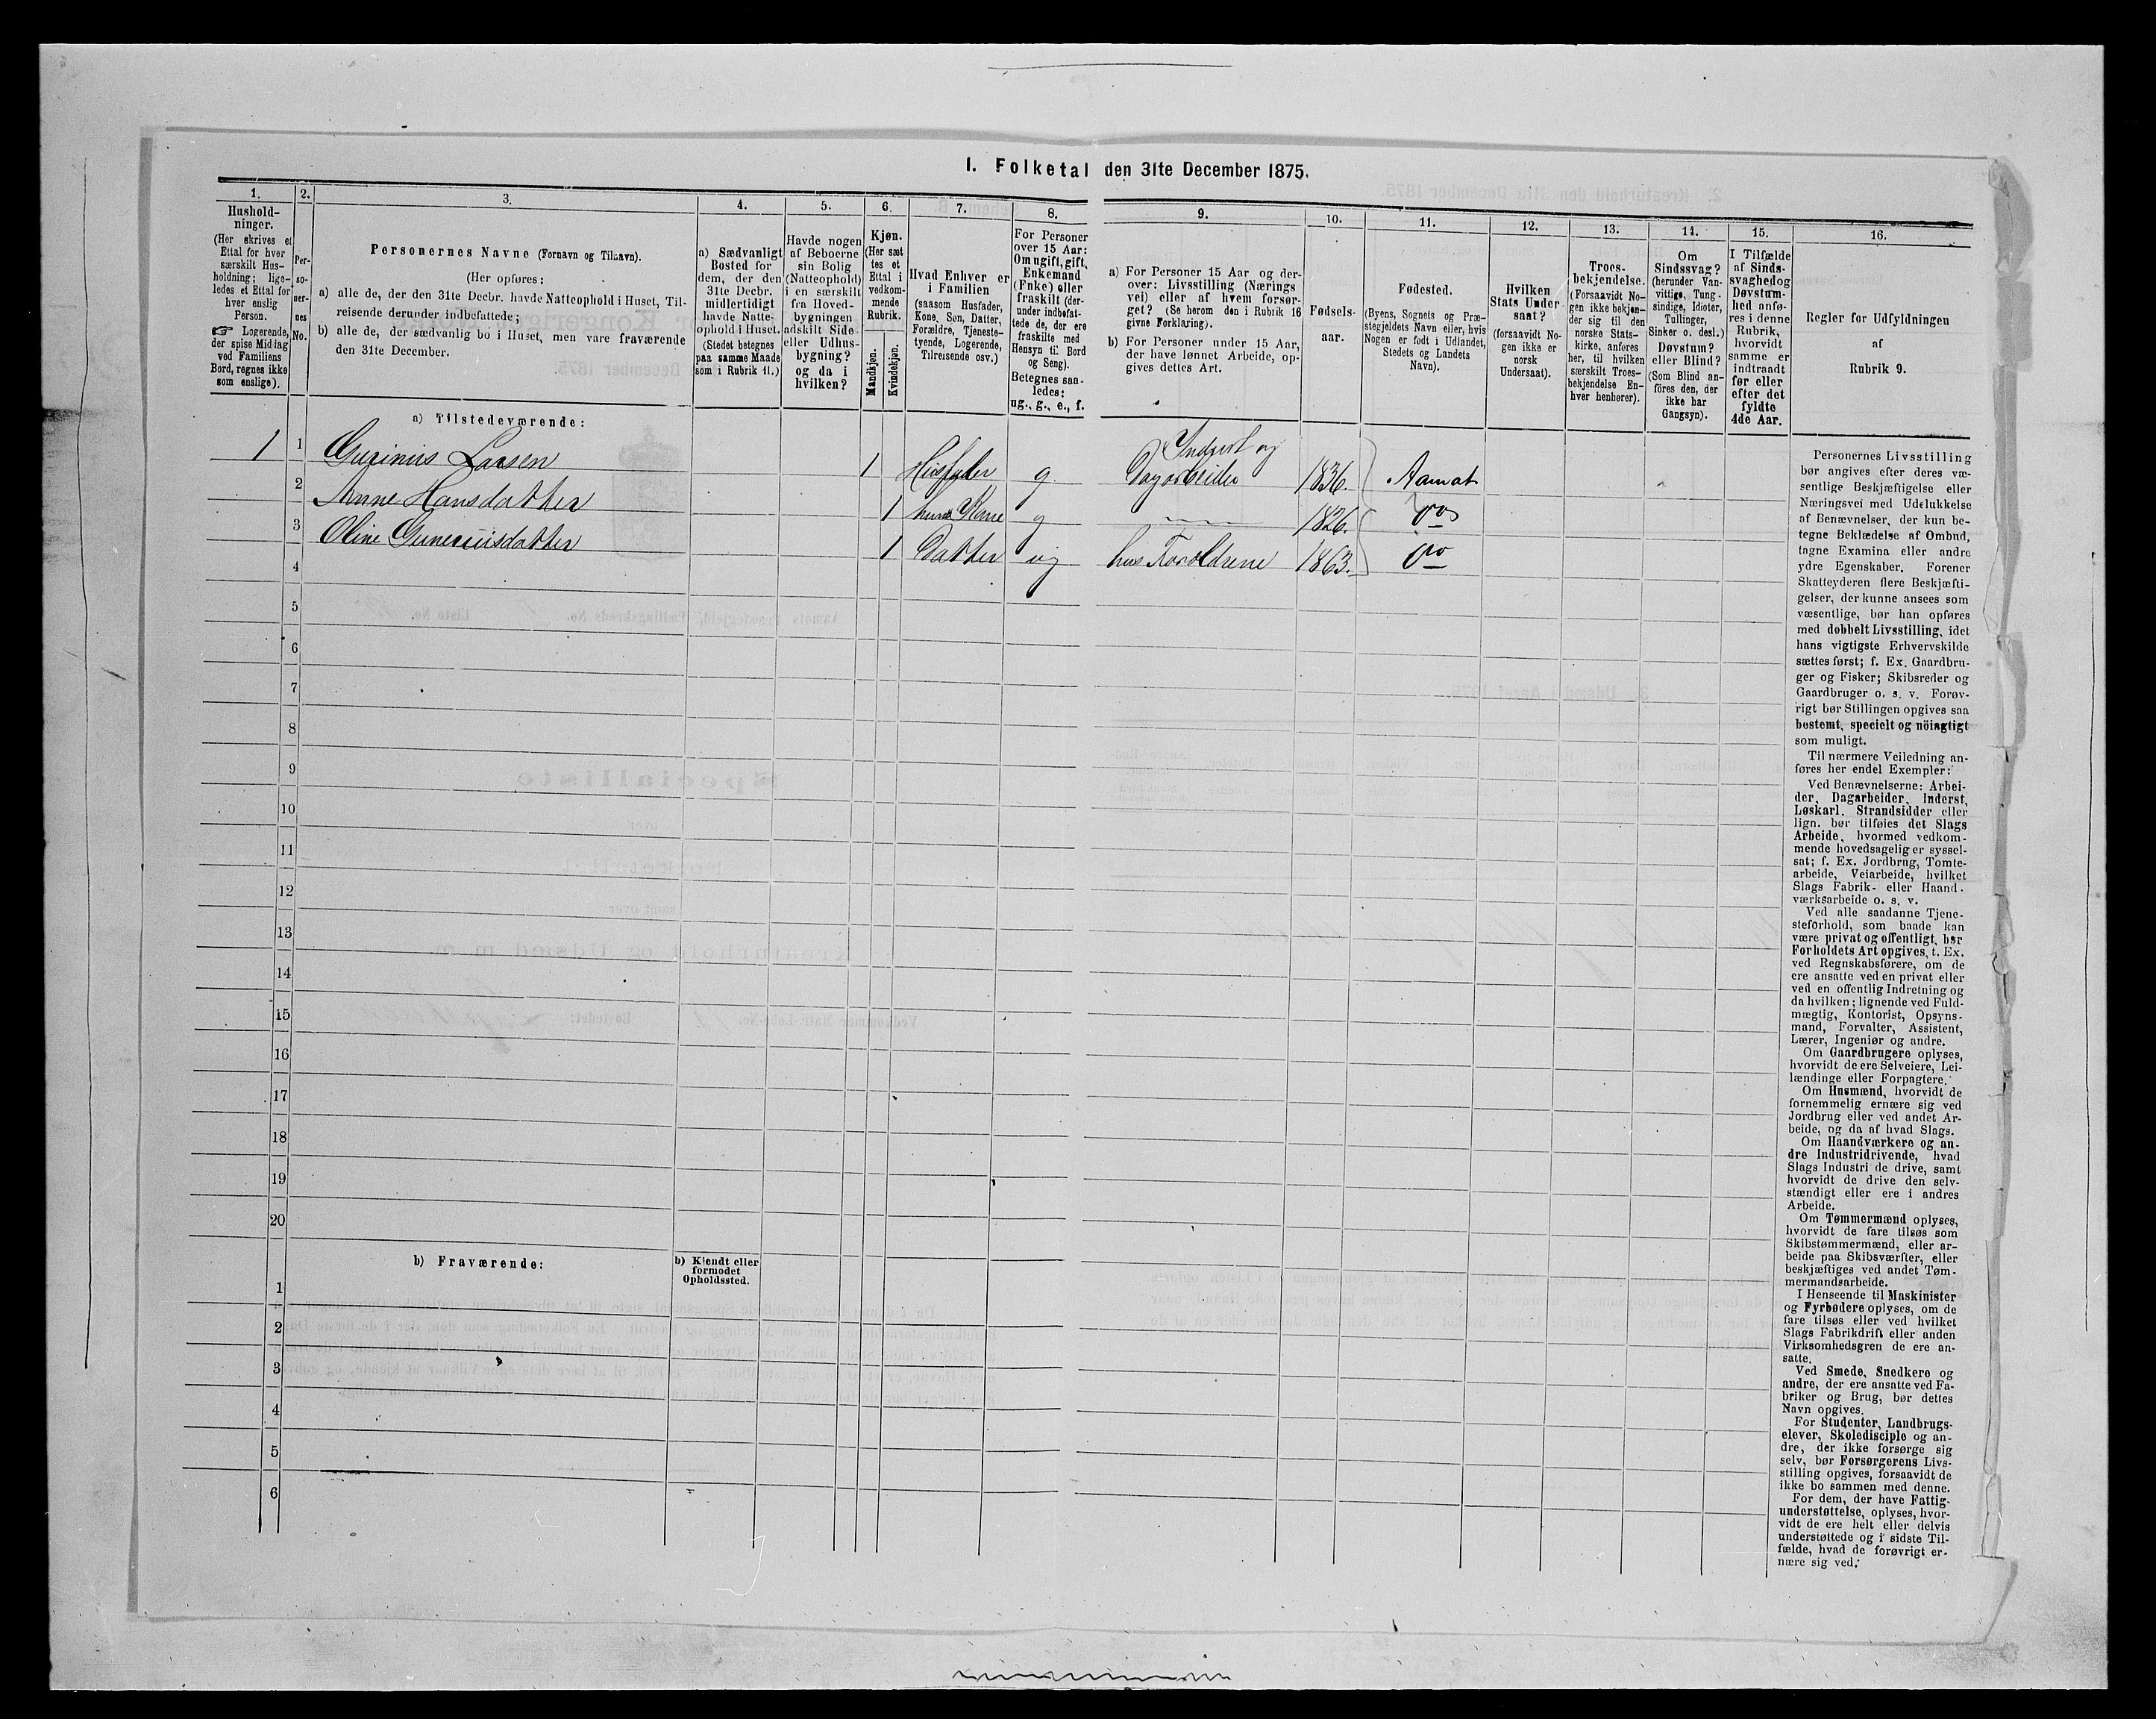 I. Folketal den 31te December 1875.
1.
Hushold-
ninger.
(Her skrives et
Ettal for hver
særskilt Hus-
holdning; lige-
ledes et Ettal for
hver enslig
Person.
☞ Logerende,
der spise Middag
ved Familiens
Bord, regnes ikke
som enslige).
2.
Per-
so-
ner-
nes
No.
3.
Personernes Navne (Fornavn og Tilnavn).
(Her opføres:
a) alle de, der den 31te Decbr. havde Natteophold i Huset, Til-
reisende derunder indbefattede;
b) alle de, der sædvanlig bo i Huset, men vare fraværende
den 31te December.
4.
a) Sædvanligt
Bosted for
dem, der den
31te Decbr.
midlertidigt
havde Natte-
ophold i Huset.
(Stedet betegnes
paa samme Maade
som i Rubrik 11.)
5.
Havde nogen
af Beboerne
sin Bolig
(Natteophold)
i en særskilt
fra Hoved-
bygningen
adskilt Side
eller Udhus-
bygning?
og da i
hvilken?
6.
Kjøn.
(Her sæt
tes et
Ettal i
vedkom-
mende
Rubrik.
Mandkjøn.
Kvindekjøn.
7.
Hvad Enhver er
i Familien
(saasom Husfader,
Kone, Søn, Datter,
Forældre, Tjeneste-
tyende, Logerende,
Tilreisende osv.)
8.
For Personer
over 15 Aar:
Om ugift, gift,
Enkemand
(Enke) eller
fraskilt (der-
under indbefat-
tede de, der ere
fraskilte med
Hensyn til Bord
og Seng).
Betegnes saa-
ledes:
ug., g., e., f.
9.
a) For Personer 15 Aar og der-
over: Livsstilling (Nærings
vei) eller af hvem forsør-
get? (Se herom den i Rubrik 16
givne Forklaring).
b) For Personer under 15 Aar,
der have lønnet Arbeide, op-
gives dettes Art.
10.
Fødsels-
aar.
11.
Fødested.
(Byens, Sognets og Præ-
stegjeldets Navn eller, hvis
Nogen er født i Udlandet,
Stedets og Landets
Navn).
12.
Hvilken
Stats Under-
saat?
(forsaavidt No-
gen ikke er
norsk
Undersaat).
13.
Troes-
bekjendelse.
(Forsaavidt No-
gen ikke bekjen-
der sig til den
norske Stats-
kirke, anføres
her, til hvilken
særskilt Troes-
bekjendelse En-
hver henhører).
14.
Om
Sindssvag?
(herunder Van-
vittige, Tung-
sindige, Idioter,
Tullinger,
Sinker o. desl.)
Døvstum?
eller Blind?
(Som Blind an-
föres den, der
ikke har
Gangsyn).
15.
I Tilfælde
af Sinds-
svaghed og
Døvstum-
hed anfø-
res i denne
Rubrik,
hvorvidt
samme er
indtraadt
før eller
efter det
fyldte
4de Aar.
16.
Regler for Udfyldningen
af
Rubrik 9.
a) Tilstedeværende:
1 1 Gunerius Larsen 1 Husfader g Inderst og Dagarbeider 1836. Aamot
2 Anne Hansdatter 1 hans Kone g 1826. do
3 Oline Guneriusdatter 1 Datter ug hos Forældrene 1863. do
4
5
6
7
8
9
10
11
12
13
14
15
16
17
18
19
20
b) Fraværende:
b) Kjendt eller
formodet
Opholdssted.
1
2
3
4
5
6
Personernes Livsstilling
bør angives efter deres væ-
sentlige Beskjæftigelse eller
Næringsvei med Udelukkelse
af Benævnelser, der kun be-
tegne Beklædelse af Ombud,
tagne Examina eller andre
ydre Egenskaber. Forener
Skatteyderen flere Beskjæfti-
gelser, der kunne ansees som
væsentlige, bør han opføres
med dobbelt Livsstilling, idet
hans vigtigste Erhvervskilde
sættes først; f. Ex. Gaardbru-
ger og Fisker; Skibsreder og
Gaardbruger o. s. v. Forøv-
rigt bør Stillingen opgives saa
bestemt, specielt og nöiagtigt
som muligt.
Til nærmere Veiledning an-
føres her endel Exempler:
Ved Benævnelserne: Arbei-
der, Dagarbeider, Inderst,
Løskarl, Strandsidder eller
lign. bør tilføies det Slags
Arbeide, hvormed vedkom-
mende hovedsagelig er syssel-
sat; f. Ex. Jordbrug, Tomte-
arbeide, Veiarbeide, hvilket
Slags Fabrik- eller Haand-
værksarbeide o. s. v.
Ved alle saadanne Tjene-
steforhold, som baade kan
være privat og offentligt, bør
Forholdets Art opgives, t. Ex.
ved Regnskabsførere, om de
ere ansatte ved en privat eller
ved en offentlig Indretning og
da hvilken; lignende ved Fuld-
mægtig, Kontorist, Opsyns-
mand, Forvalter, Assistent,
Lærer, Ingeniør og andre.
Om Gaardbrugere oplyses,
hvorvidt de ere Selveiere, Lei-
lændinge eller Forpagtere.
Om Husmænd, hvorvidt de
fornemmelig ernære sig ved
Jordbrug eller ved andet Ar-
beide, og da af hvad Slags.
Om Haandværkere og an-
dre Industridrivende, hvad
Slags Industri de drive, samt
hvorvidt de drive den selv-
stændigt eller ere i andres
Arbeide.
Om Tømmermænd oplyses,
hvorvidt de fare tilsøs som
Skibstømmermænd, eller ar-
beide paa Skibsværfter, eller
beskjæftiges ved andet Tøm-
mermandsarbeide.
I Henseende til Maskinister
og Fyrbødere oplyses, om de
fare tilsøs eller ved hvilket
Slags Fabrikdrift eller anden
Virksomhedsgren de ere an-
satte.
Ved Smede, Snedkere og
andre, der ere ansatte ved Fa-
briker og Brug, bør dettes
Navn opgives.
For Studenter, Landbrugs-
elever, Skoledisciple og an-
dre, der ikke forsørge sig
selv, bør Forsørgerens Livs-
stilling opgives, forsaavidt de
ikke bo sammen med denne.
For dem, der have Fattig-
understøttelse, oplyses, hvor-
vidt de ere helt eller delvis
understøttede og i sidste Til-
fælde, hvad de forøvrigt er-
nære sig ved.